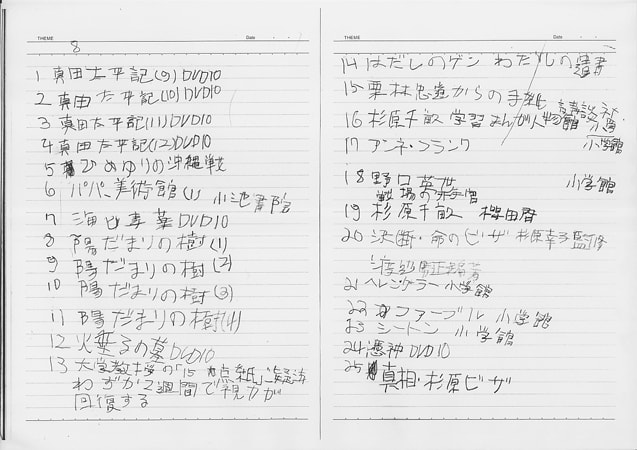 THEME
Date
8
1 真田太平記(9)DVD10
2 真田太平記(10)DVD10
3 真田太平記(11)DVD10
4 真田太平記(12)DVD10
5 ひめゆりの沖縄戦
6 パパ、美術館(1) 小池書院
7 海と毒薬DVD10
8 陽だまりの樹(1)
9 陽だまりの樹(2)
10 陽だまりの樹(3)
11 陽だまりの樹(4)
12 火垂るの墓DVD10
13 大学教授の「15点紙」凝
わずか2週間で視力が
回復する
THEME
Date
14 はだしのゲン わたしの遺書
15 栗林忠道からの手紙 講談社
16 杉原千畝 学習まんが人物館 小
17 アンネ・フランク 小学館
18 野口英世 小学館
戦場の
19 杉原千畝 櫻田啓
20 決断・命のビザ 杉原幸子監修
渡辺勝正編著
21 ヘレンケラー 小学館
22 ファーブル 小学館
23 シートン 小学館
24 憑神DVD10
25 真相・杉原ビザ